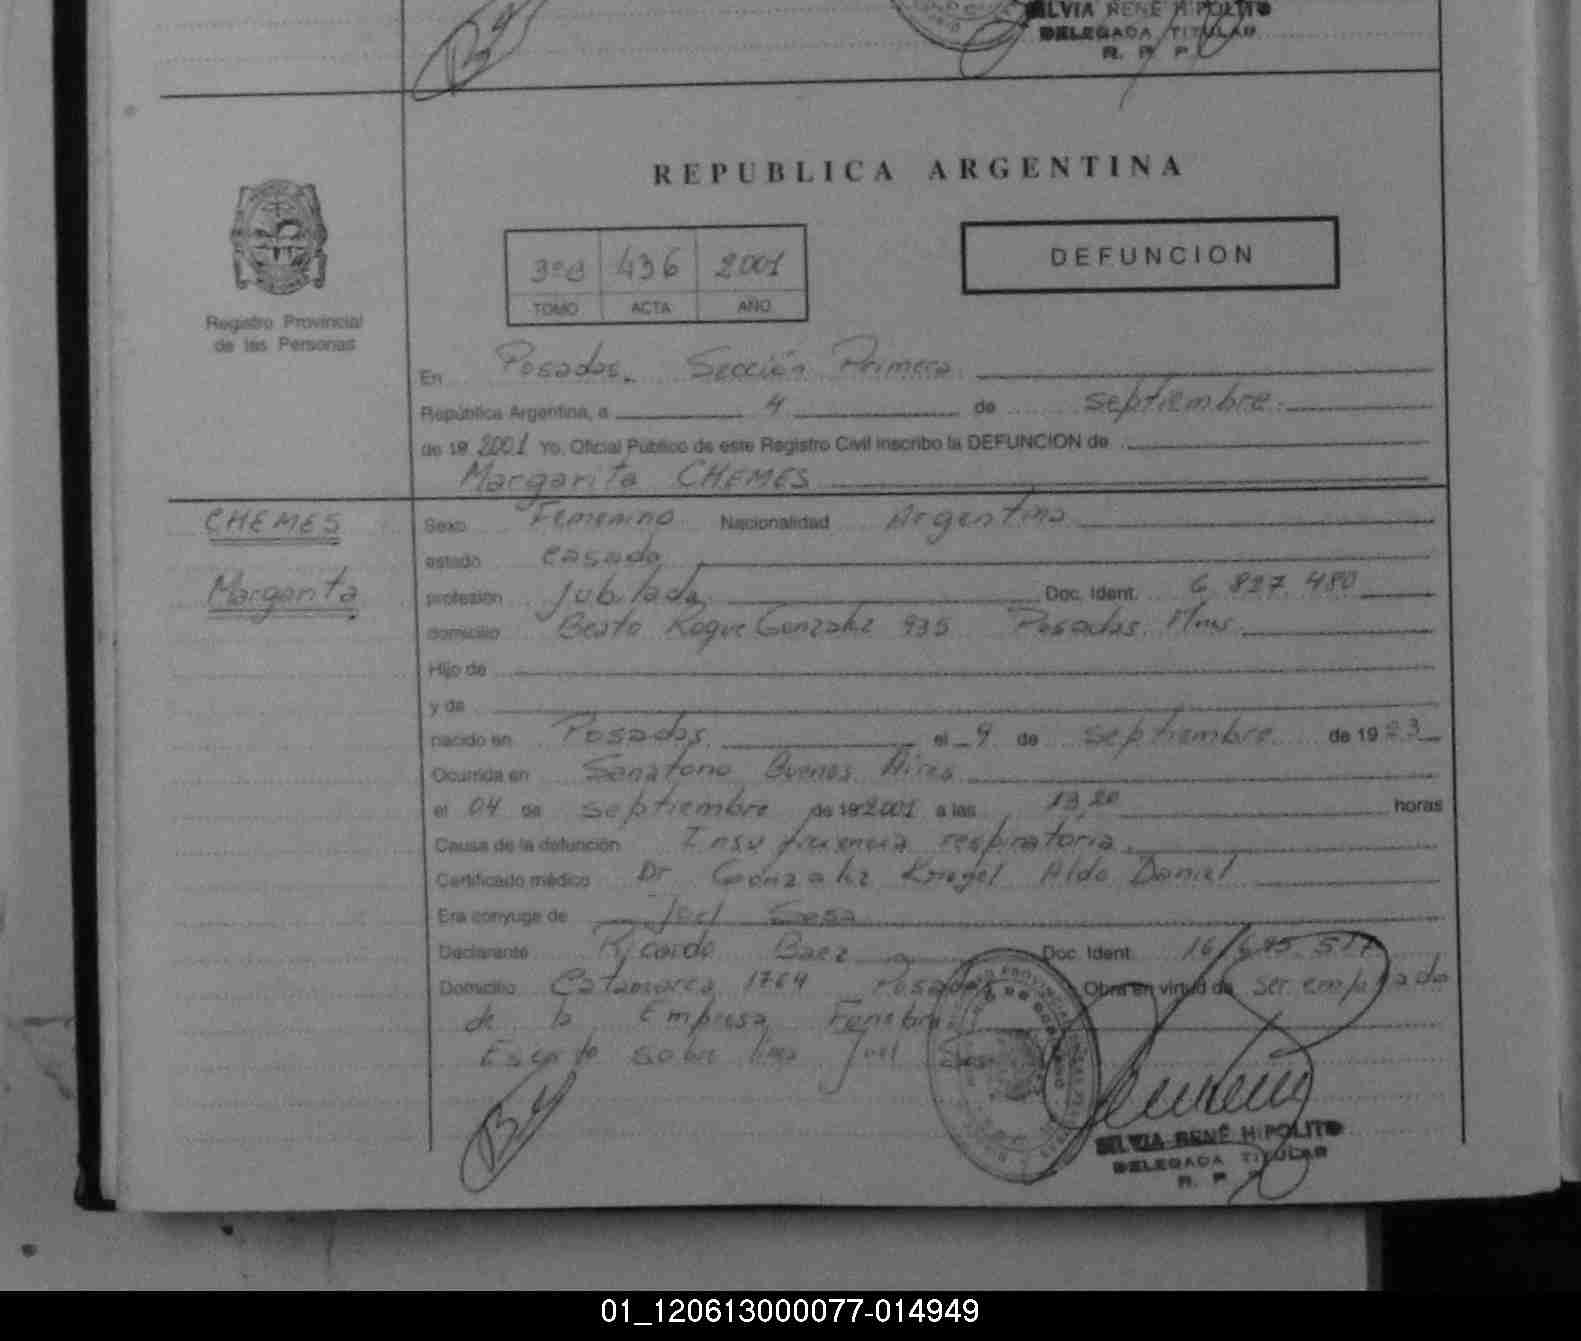 SILVIA RENÉ HIPOLITO
DELEGADA TITULAR
R. P. P.
REPUBLICA ARGENTINA
3º B 436 2001
TOMO ACTA AÑO
DEFUNCION
Registro Provincial
de las Personas
En Posadas. Sección Primera
República Argentina, a 4 de septiembre.
de 19 2001 Yo, Oficial Público de este Registro Civil inscribo la DEFUNCION de
Margarita CHEMES
CHEMES
Margarita
Sexo Femenino Nacionalidad Argentina
estado casada
profesión Jubilada Doc. Ident. 6 827 480
domicilio Beato Roque Gonzalez 935 Posadas. Mnes.
Hijo de
y de
nacido en Posadas el 9 de septiembre de 19 23
Ocurrida en Sanatorio Buenos Aires
el 04 de septiembre de 19 2001 a las 13,20 horas
Causa de la defunción Insuficiencia respiratoria.
Certificado médico Dr Gonzalez Kriegel Aldo Daniel
Era conyuge de Joel Sesa
Declarante Ricardo Baez Doc. Ident. 16 695 517
Domicilio Catamarca 1764 Posadas Obra en virtud de ser empleado
de la Empresa Fenebre
Escrito sobre linea Joel
SILVIA RENÉ HIPOLITO
DELEGADA TITULAR
R. P.
01_120613000077-014949